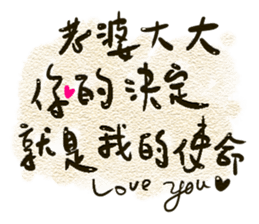 老婆大大
你的決定
就是我的使命
Love you